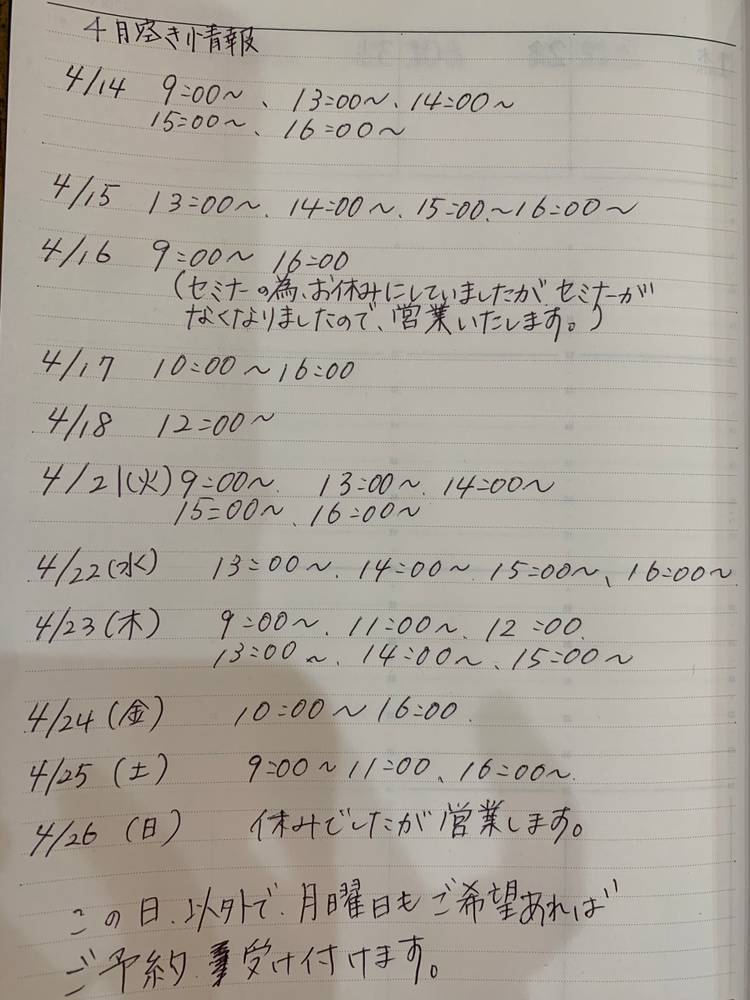 4月空き情報
4/14 9:00〜、13:00〜、14:00〜
15:00〜、16:00〜
4/15 13:00〜、14:00〜、15:00〜16:00〜
4/16 9:00〜 16:00
(セミナーの為、お休みにしていましたがセミナーが
なくなりましたので、営業いたします。)
4/17 10:00〜16:00
4/18 12:00〜
4/21(火) 9:00〜、13:00〜、14:00〜
15:00〜、16:00〜
4/22(水) 13:00〜、14:00〜 15:00〜、16:00〜
4/23(木) 9:00〜、11:00〜、12:00、
13:00〜、14:00〜、15:00〜
4/24(金) 10:00〜16:00
4/25(土) 9:00〜11:00、16:00〜
4/26(日) 休みでしたが営業します。
この日、以外で、月曜日もご希望あれば
ご予約 受け付けます。